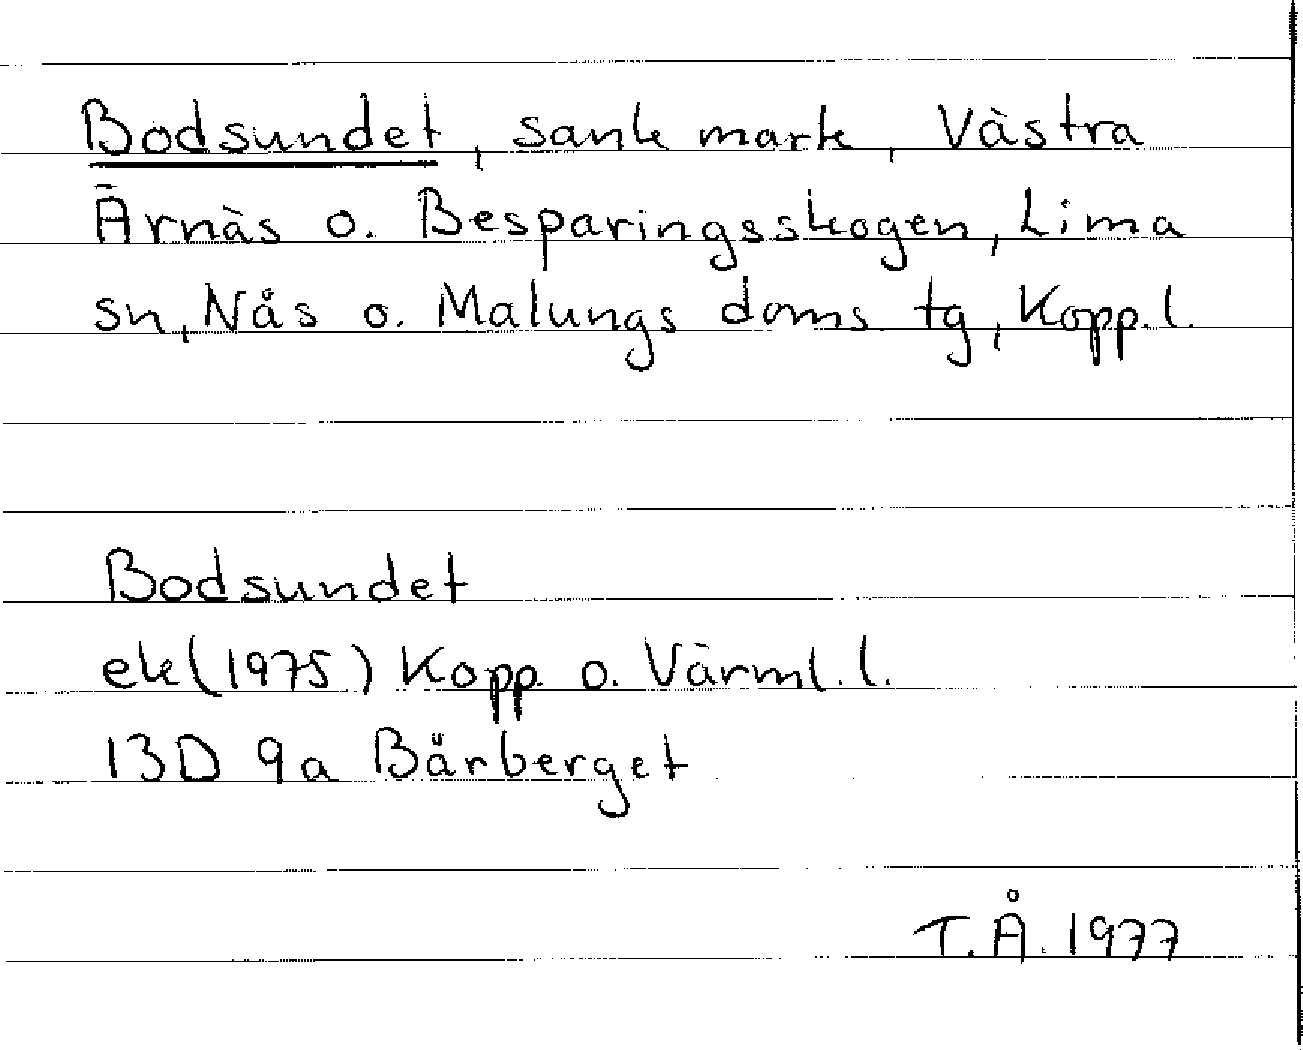 Bodsundet, sank mark, Västra
Ärnäs o. Besparingsskogen, Lima
sn, Nås o. Malungs doms tg, Kopp.l.
Bodsundet
ek(1975) Kopp. o. Värml.l.
13D 9a Bärberget
T.Å. 1977